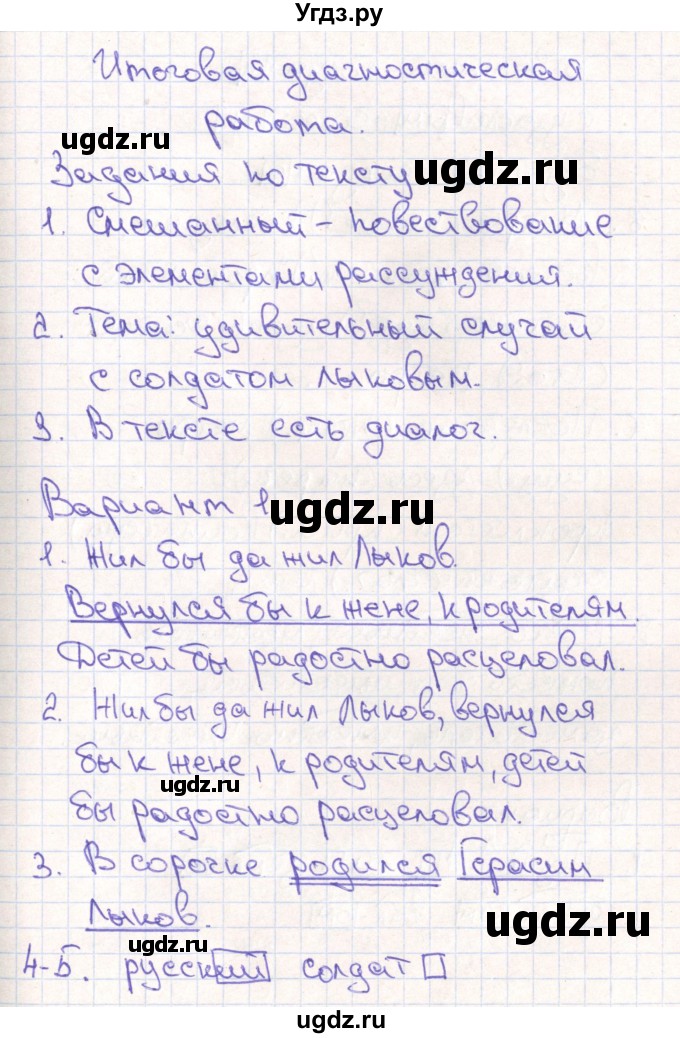 Угдз.ру
Итоговая диагностическая
работа.
ugdz.ru
Задания по тексту
ugdz.ru
1. Смешанный – повествование
с элементами рассуждения.
2. Тема: удивительный случай
с солдатом Лыковым.
3. В тексте есть диалог.
Вариант 1
ugdz.ru
1. Жил бы да жил Лыков.
Вернулся бы к жене, к родителям.
Детей бы радостно расцеловал.
2. Жил бы да жил Лыков, вернулся
бы к жене, к родителям, детей
ugdz.ru
бы радостно расцеловал.
3. В сорочке родился Герасим
Лыков.
ugdz.ru
ugdz.ru
4-Б. русский солдат
ugdz.ru